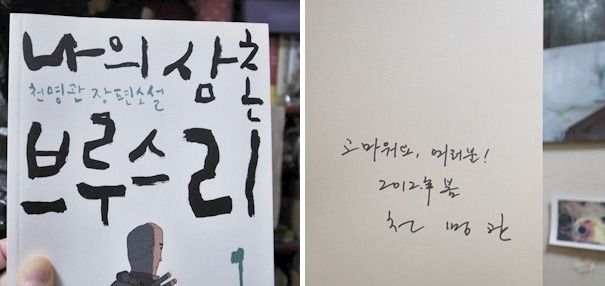 나의 삼촌
천명관 장편소설
브루스 리
1
고마워요, 여러분!
2012年 봄
천명관